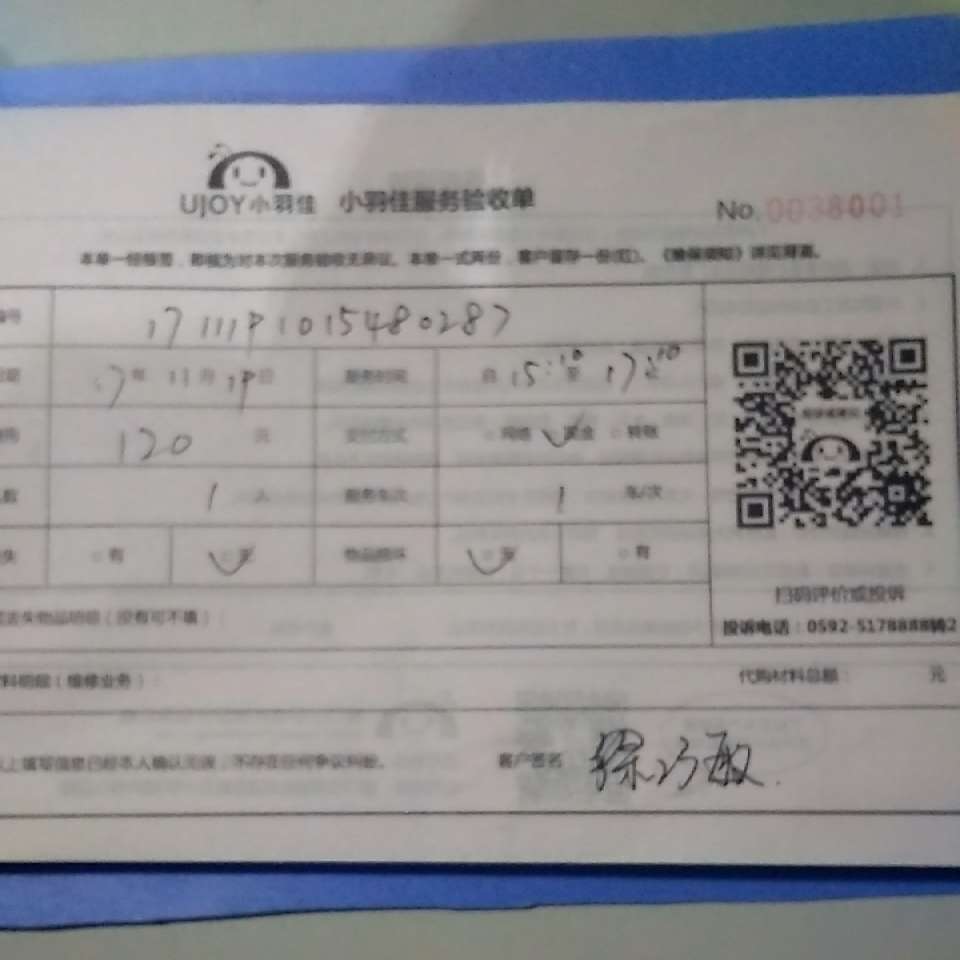 UJOY小羽佳 小羽佳服务验收单
No. 0038001
本单一经签署，即视为对本次服务验收无异议。本单一式两份，客户留存一份(红)。
编号
17年 11月 日 服务时间 自 15:10 至 17:10
120 元 支付方式 网络 现金 转账
1 人 服务车次 1 车/次
有 无 物品损坏 无 有
扫码评价或投诉
丢失物品明细（没有可不填）：
投诉电话：0592-5178888转2
材料明细（维修业务）： 代购材料总额： 元
以上填写信息已经本人确认无误，不存在任何争议纠纷。 客户签名